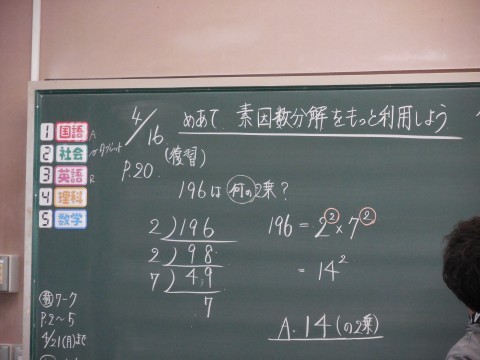 4/16
めあて 素因数分解をもっと利用しよう
P.20 (復習)
196は何の2乗?
2)196
2)98
7)49
7
196 = 2² × 7²
= 14²
A. 14(の2乗)
1 国語 A
2 社会 タブレット
3 英語 R
4 理科
5 数学
ワーク
P.2〜5
4/21(月)まで